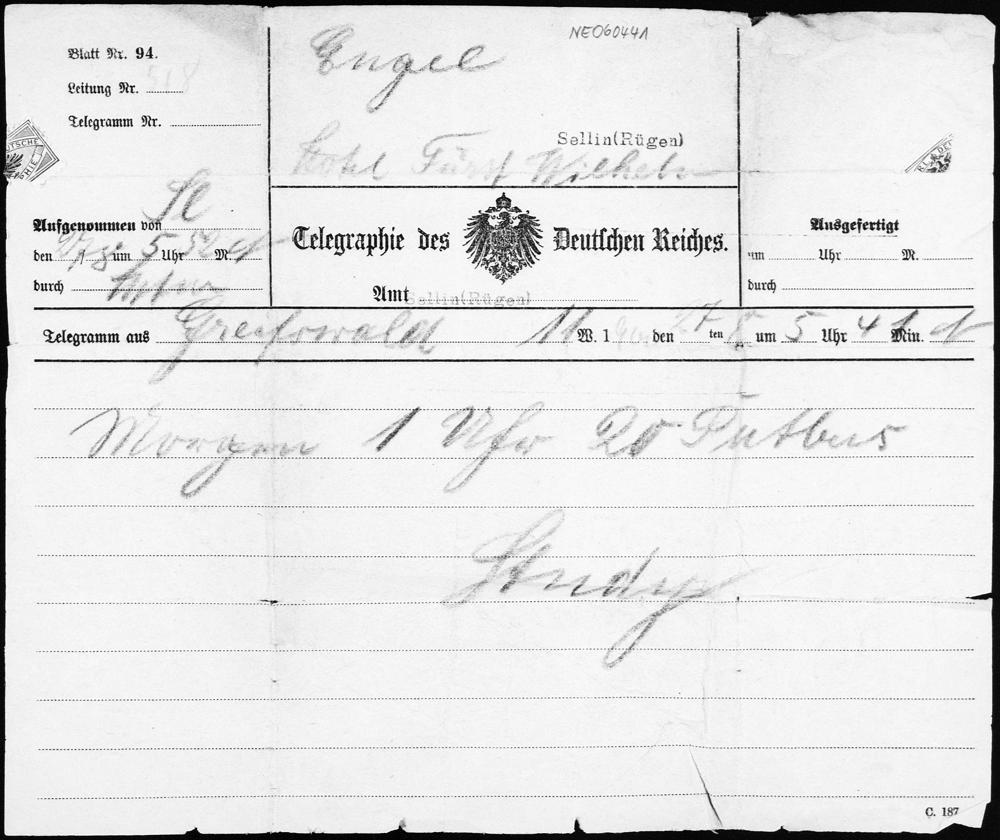 NE060441
Blatt Nr. 94.
Leitung Nr.
Telegramm Nr.
Engel
Sellin(Rügen)
Hotel Fürst Wilhelm
Aufgenommen von
den um 5 Uhr 50 M.
durch
Telegraphie des Deutschen Reiches.
Amt Sellin(Rügen)
Ausgefertigt
um Uhr M.
durch
Telegramm aus Greifswald 11 W. 1 den 27 ten 8 um 5 Uhr 41 Min.
Morgen 1 Uhr 20 Putbus
Study
C. 187